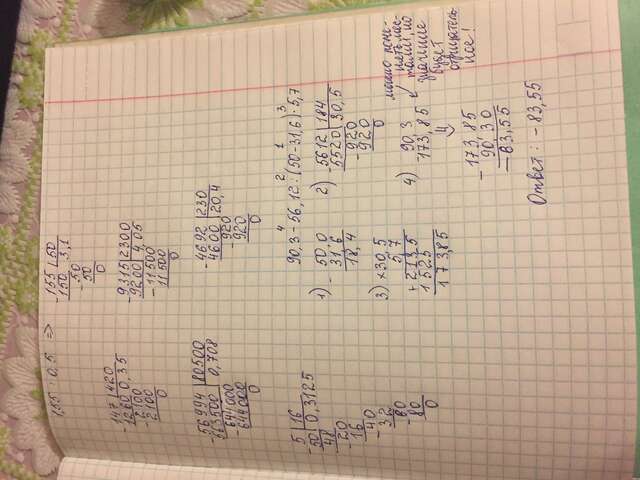 1,55 : 0,5 =>
-155 | 50
150 3,1
-50
50
0
-147 | 420
-1260 0,35
-2100
2100
0
-9315 | 2300
9200 4,05
-11500
11500
0
-56994 | 80500
563500 0,708
-644000
644000
0
-4692 | 230
4600 20,4
-920
920
0
5 | 16
-50 0,3125
48
-20
16
-40
-32
-80
80
0
4 2 1 3
90,3 - 56,12 : (50 - 31,6) · 5,7
1) - 50,0
31,6
18,4
2) -5612 | 184
5520 30,5
-920
920
0
3) × 30,5
5,7
+ 2135
1525
173,85
4) 90,3
173,85
можно
значение
будет
отрицатель
ное!
- 173,85
90,30
-83,55
Ответ: -83,55